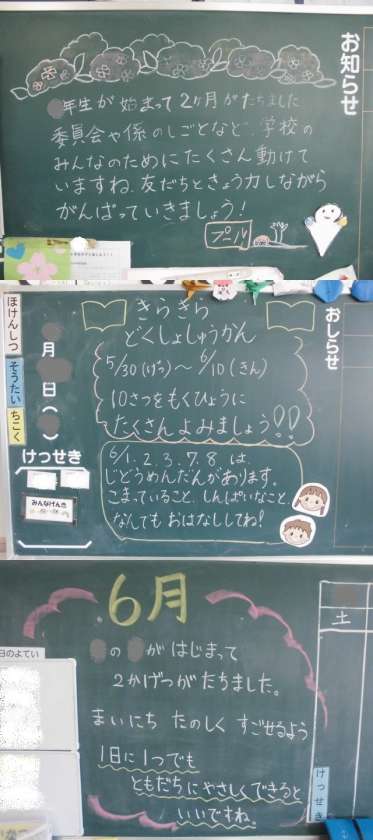 お知らせ
年生が始まって2ヶ月がたちました
委員会や係のしごとなど、学校の
みんなのためにたくさん動けて
いますね。友だちときょう力しながら
がんばっていきましょう！
プール
おしらせ
ほけんしつ
そうたい
ちこく
月
日
(　)
けっせき
みんなげんき
きらきら
どくしょしゅうかん
5/30(げつ)～6/10(きん)
10さつをもくひょうに
たくさんよみましょう!!
6/1.2.3.7.8 は
じどうめんだんがあります。
こまっていること、しんぱいなこと
なんでも おはなししてね!
6月
の　がはじまって
2かげつがたちました。
まいにち たのしく すごせるよう
1日に1つでも
ともだちにやさしくできると
いいですね。
日のよてい
土
けっせき